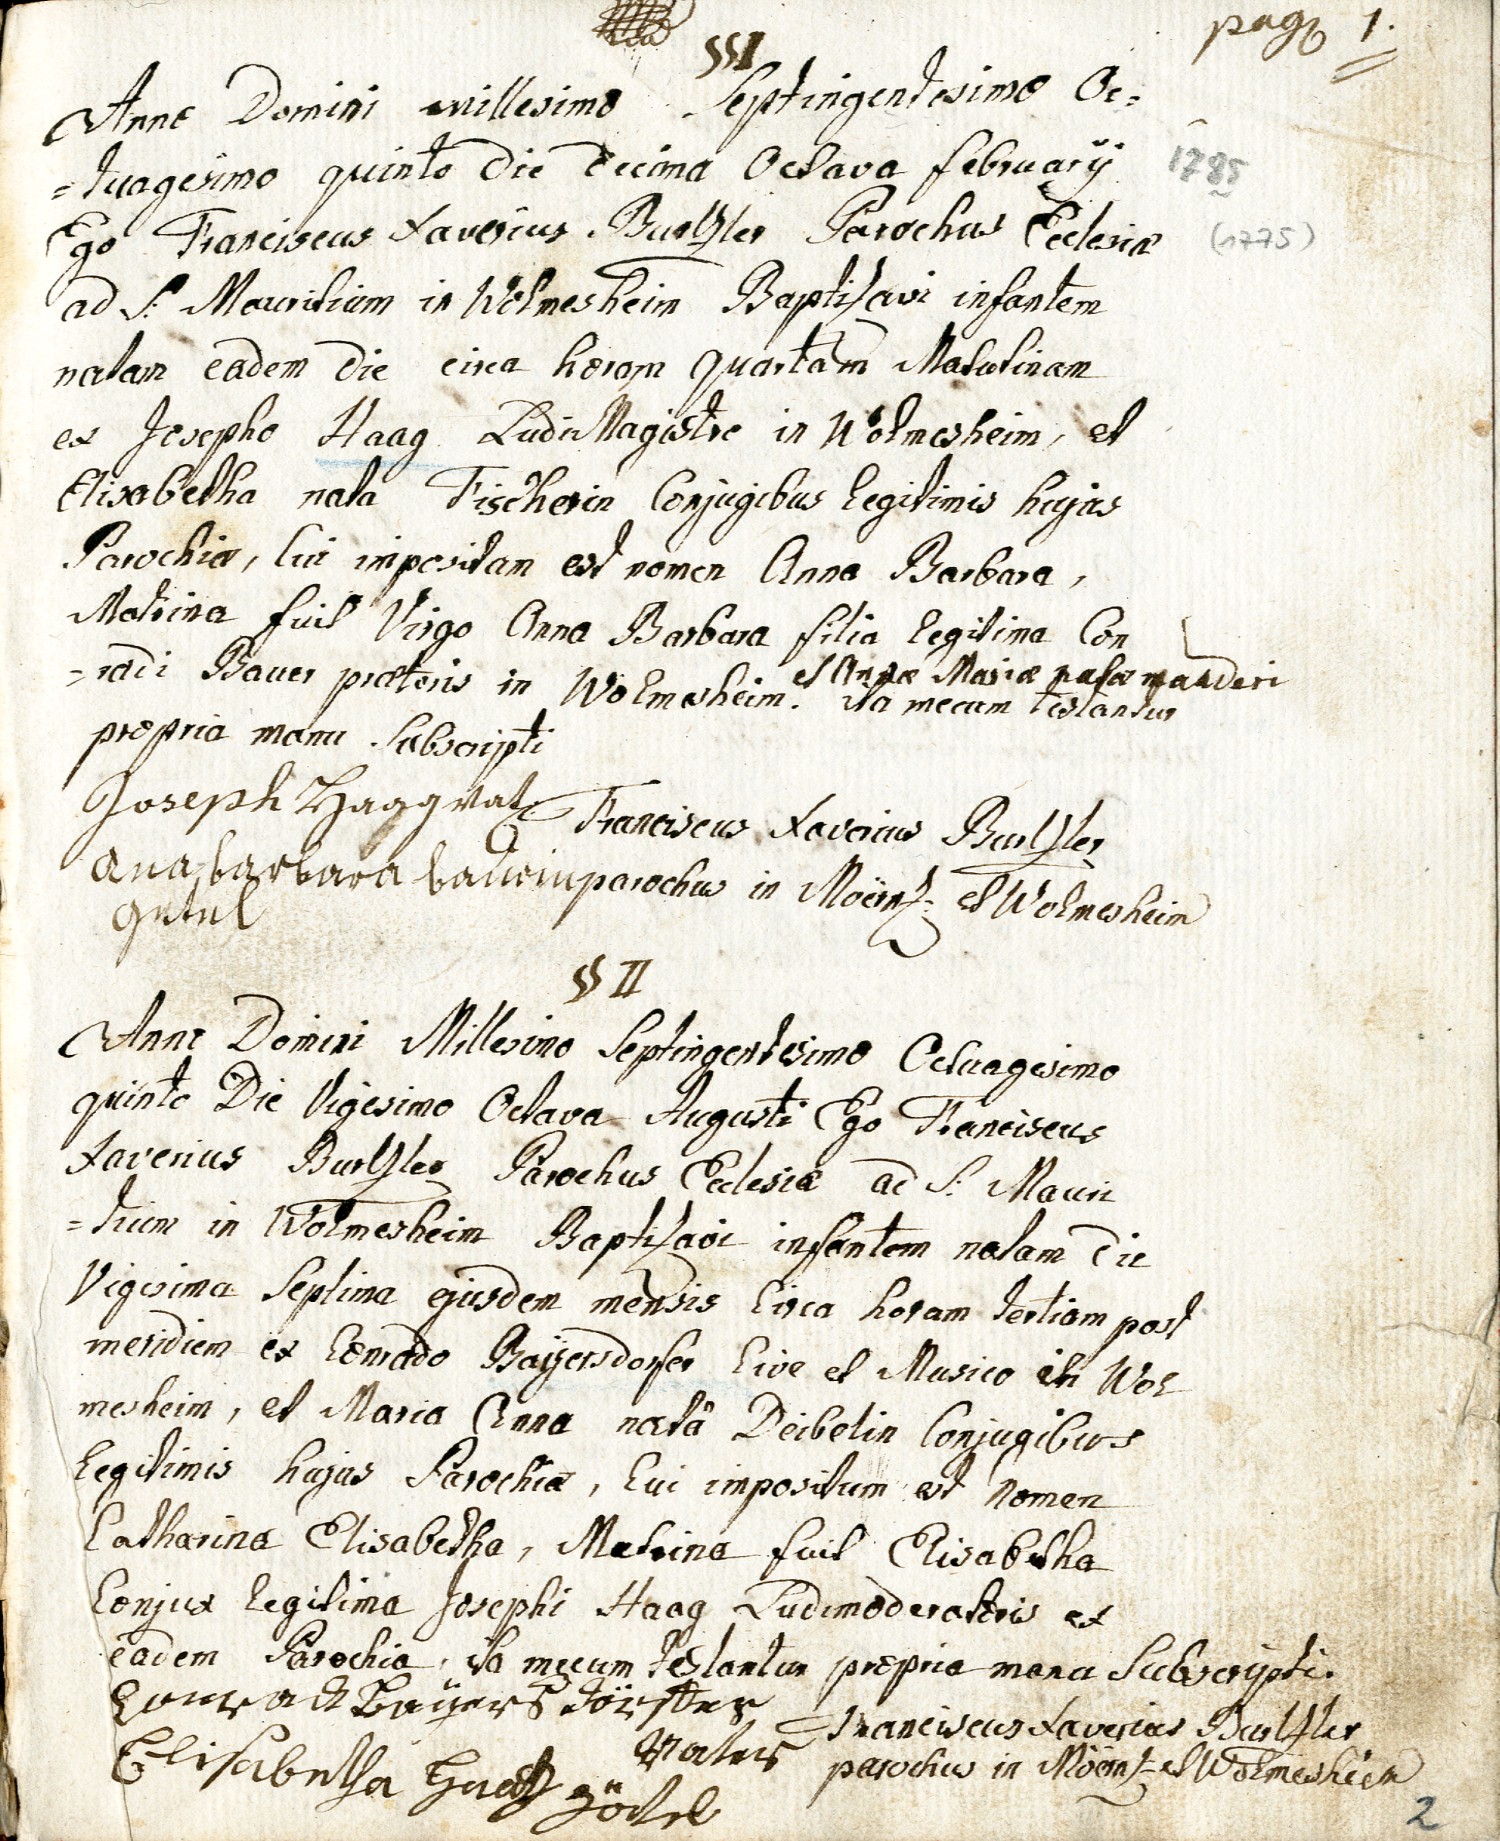 pag 1.
§§ I
Anno Domini millesimo Septingentesimo Oc=
=tuagesimo quinto die decima Octava february
1785
Ego Franciscus Xaverius Burtzler Parochus Ecclesiæ
(1775)
ad S: Mauritium in Wolmesheim Baptizavi infantem
natam eadem die circa horam quartam Matutinam
ex Josepho Haag LudiMagistro in Wolmesheim, et
Elisabetha nata Fischerin Conjugibus legitimis hujus
Parochiæ, Cui impositum est nomen Anna Barbara,
Matrina fuit Virgo Anna Barbara filia legitima Con
=radi Bauer prætoris in Wolmesheim. et Annæ Mariæ natæ
ita mecum testantur
propria manu Subscripti
Joseph Haag Vat
Franciscus Xaverius Burtzler
ana barbara bauerin
parochus in Mörtz: et Wolmesheim
§§ II
Anno Domini Millesimo Septingentesimo Octuagesimo
quinto Die Vigesimo Octava Augusti Ego Franciscus
Xaverius Burtzler Parochus Ecclesiæ ad S: Mauri
=tium in Wolmesheim Baptizavi infantem natam die
Vigesima Septima ejusdem mensis Circa horam tertiam post
meridiem ex Conrado Baÿersdorfer Cive et Musico in Wol
mesheim, et Maria Anna natâ Deibelin Conjugibus
legitimis hujus Parochiæ, Cui impositum est Nomen
Catharina Elisabetha, Matrina fuit Elisabetha
Conjux legitima Josephi Haag Ludimoderatoris ex
eadem Parochia, ita mecum testantur propria manu Subscripti.
Conradt Baÿersdörffer
Vatter
Franciscus Xaverius Burtzler
Elisabetha Haag
parochus in Mörtz et Wolmesheim
2